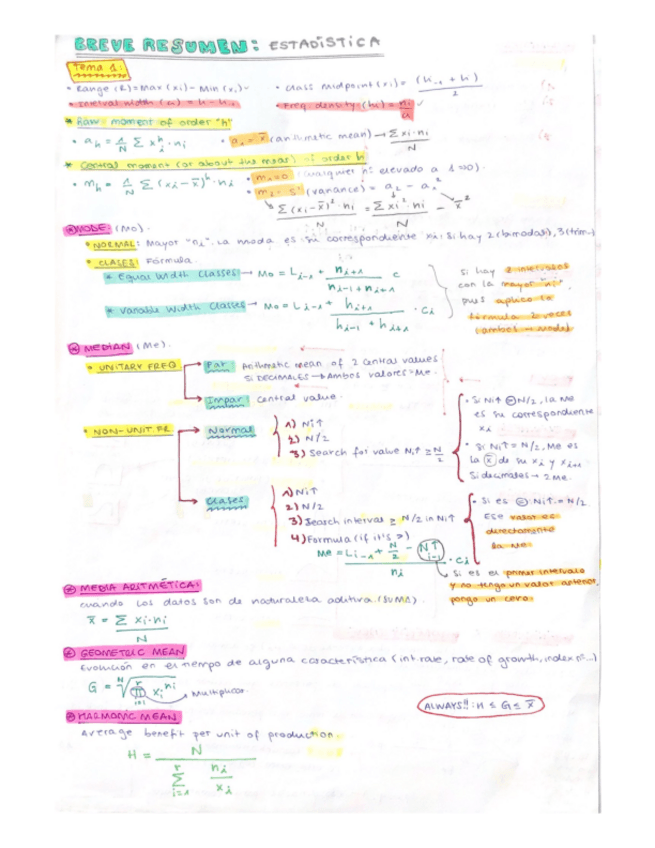 BREVE RESUMEN: ESTADÍSTICA
Tema 1:
• Range (R) = Max (xi) - Min (xi) • Class midpoint (xi) = (Li-1 + Li) / 2
• Interval width (a) = • Freq density (hi) = ni / a
* Raw moment of order "h"
• ah = 1/N Σ xi^h · ni • a1 = x̄ (arithmetic mean) → Σ xi·ni / N
* Central moment (or about the mean) of order h
• mh = 1/N Σ (xi - x̄)^h · ni • m1 = 0 (cualquier nº elevado a 1 = 0).
• m2 = S² (variance) = a2 - a1²
Σ (xi - x̄)² · ni / N = Σ xi² · ni / N - x̄²
MODE: (Mo).
• NORMAL: Mayor "ni". La moda es su correspondiente xi. Si hay 2 (bimodal), 3 (trim-)
• CLASES: Fórmula.
* Equal Width Classes → Mo = Li-1 + ni+1 / ni-1 + ni+1 c
* Variable Width Classes → Mo = Li-1 + hi+1 / hi-1 + hi+1 · ci
Si hay 2 intervalos
con la mayor "ni",
pues aplico la
fórmula 2 veces
(ambos → moda)
MEDIAN (Me).
• UNITARY FREQ
Par Arithmetic mean of 2 central values
Si DECIMALES → Ambos valores = Me.
Impar Central value.
• NON-UNIT FR.
Normal
1) Ni↑
2) N/2
3) Search for value Ni↑ ≥ N/2
• Si Ni↑ > N/2, la Me
es su correspondiente
xi
• Si Ni↑ = N/2, Me es
la x̄ de su xi y xi+1.
Si decimales → 2 Me.
Clases
1) Ni↑
2) N/2
3) Search interval ≥ N/2 in Ni↑
4) Formula (if it's >)
Me = Li-1 + N/2 - Ni-1↑ / ni · ci
• Si es = Ni↑ = N/2
Ese valor es
directamente
la Me.
Si es el primer intervalo
y no tengo un valor anterior,
pongo un cero.
MEDIA ARITMÉTICA:
Cuando los datos son de naturaleza aditiva (SUMA).
x̄ = Σ xi·ni / N
GEOMETRIC MEAN
Evolución en el tiempo de alguna característica (int. rate, rate of growth, index nº...)
G = ᴺ√ r Π i=1 xi^ni → Multiplicar.
ALWAYS!!: H ≤ G ≤ x̄
HARMONIC MEAN
Average benefit per unit of production.
H = N / r Σ i=1 ni / xi